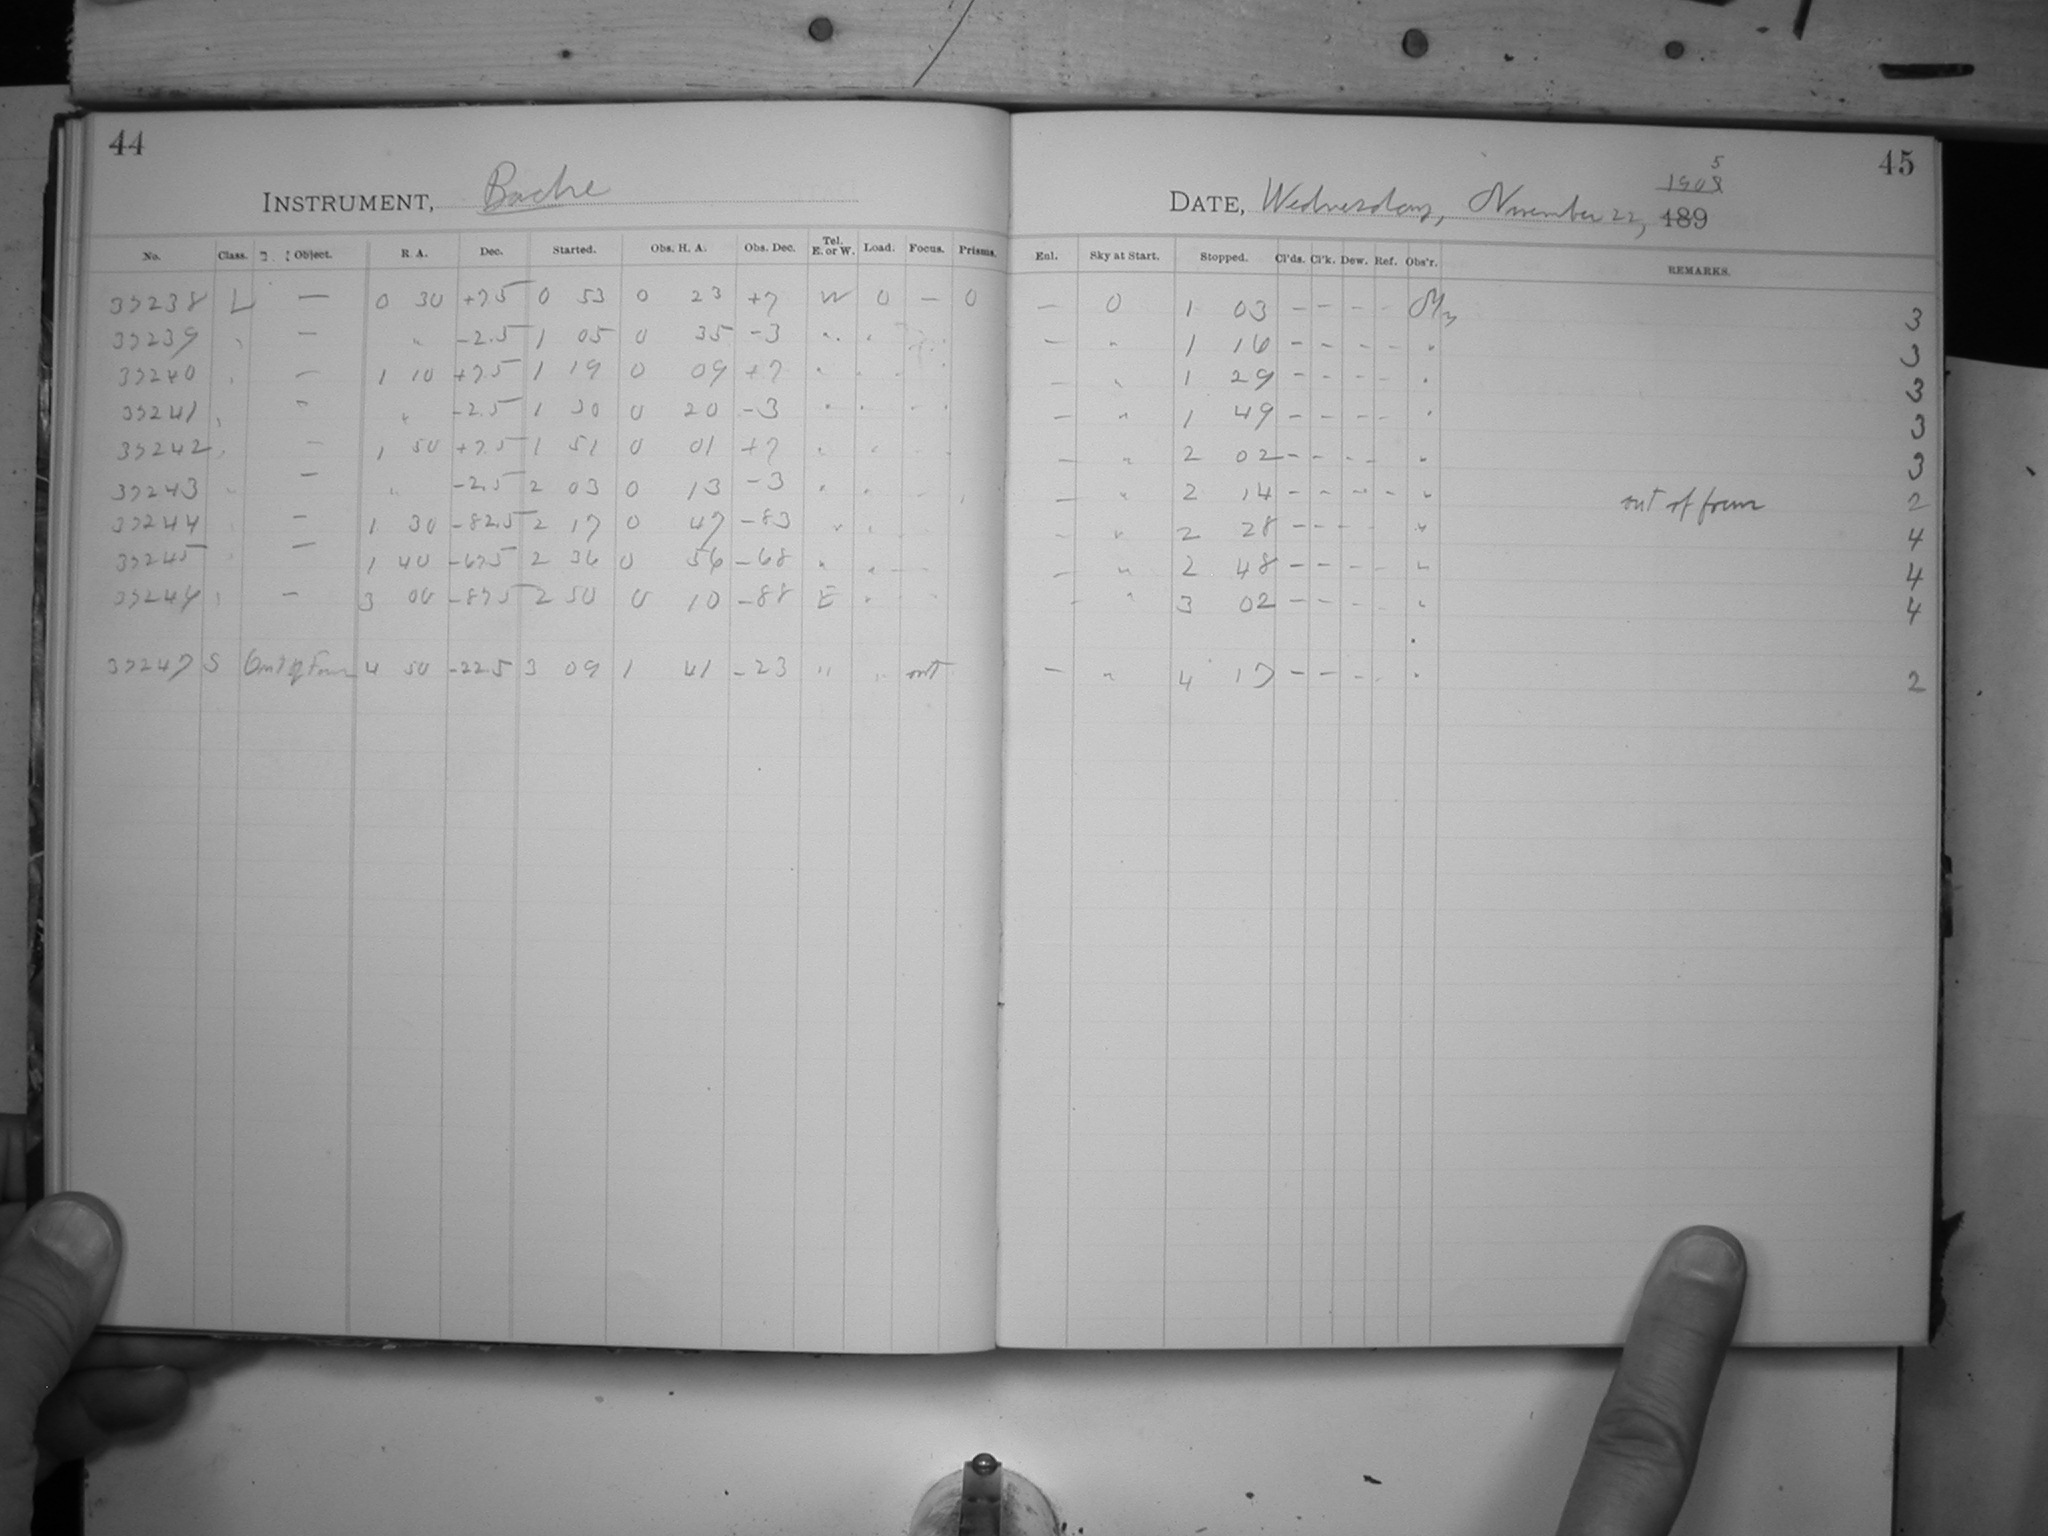 44
INSTRUMENT, Bache
No. Class. Object. R. A. Dec. Started. Obs. H. A. Obs. Dec. Tel. E. or W. Load. Focus. Prisms.
37238 L — 0 30 +7.5 0 53 0 23 +7 W 0 — 0
37239 " — " -2.5 1 05 0 35 -3 " "
37240 " — 1 10 +7.5 1 19 0 09 +7 " " " "
37241 " — " -2.5 1 30 0 20 -3 " " " "
37242 " — 1 50 +7.5 1 51 0 01 +7 " " " "
37243 " — " -2.5 2 03 0 13 -3 " " " "
37244 " — 1 30 -82.5 2 17 0 47 -83 " "
37245 " — 1 40 -67.5 2 36 0 56 -68 " "
37246 " — 3 00 -87.5 2 50 0 10 -88 E "
37247 S Out of Focus 4 50 -22.5 3 09 1 41 -23 " " out
45
5
1908
DATE, Wednesday, November 22, 189
Enl. Sky at Start. Stopped. Cl'ds. Cl'k. Dew. Ref. Obs'r. REMARKS.
— 0 1 03 - - - - 3
— " 1 16 - - - - " 3
— " 1 29 - - - - " 3
— " 1 49 - - - - " 3
— " 2 02 - - - - " 3
— " 2 14 - - - - " out of focus 2
- " 2 28 - - - - " 4
— " 2 48 - - - - " 4
- " 3 02 - - - - " 4
— " 4 17 - - - - " 2